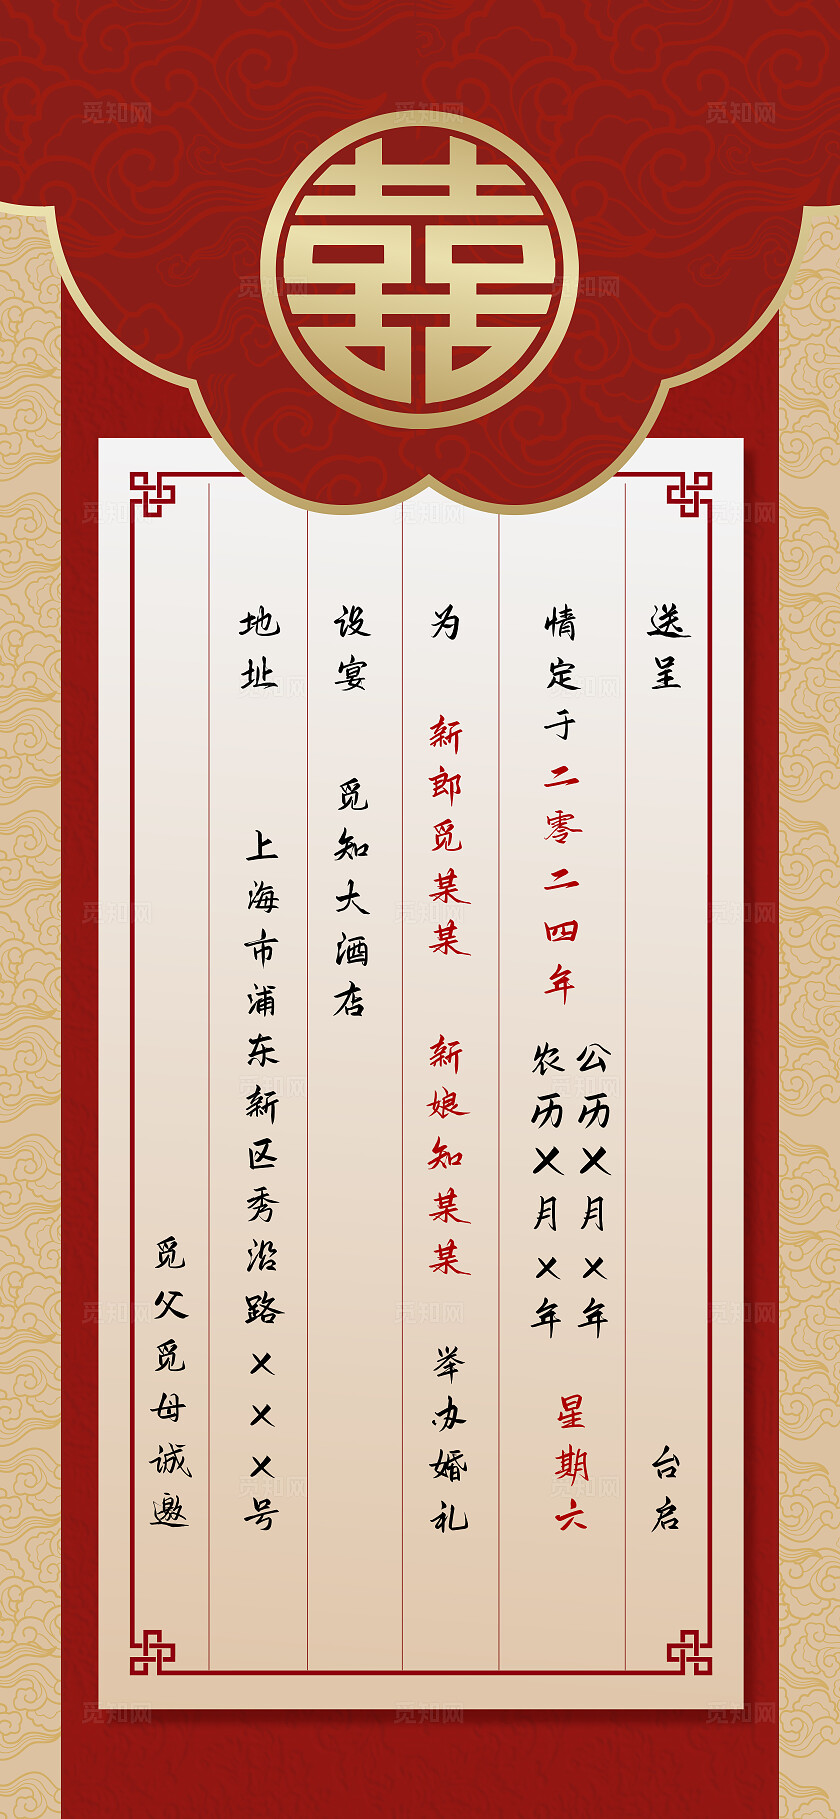 囍
送呈 台启
情定于二零二四年 公历×月×年 星期六
农历×月×年
为 新郎觅某某 新娘知某某 举办婚礼
设宴 觅知大酒店
地址 上海市浦东新区秀沿路×××号
觅父觅母诚邀
觅知网